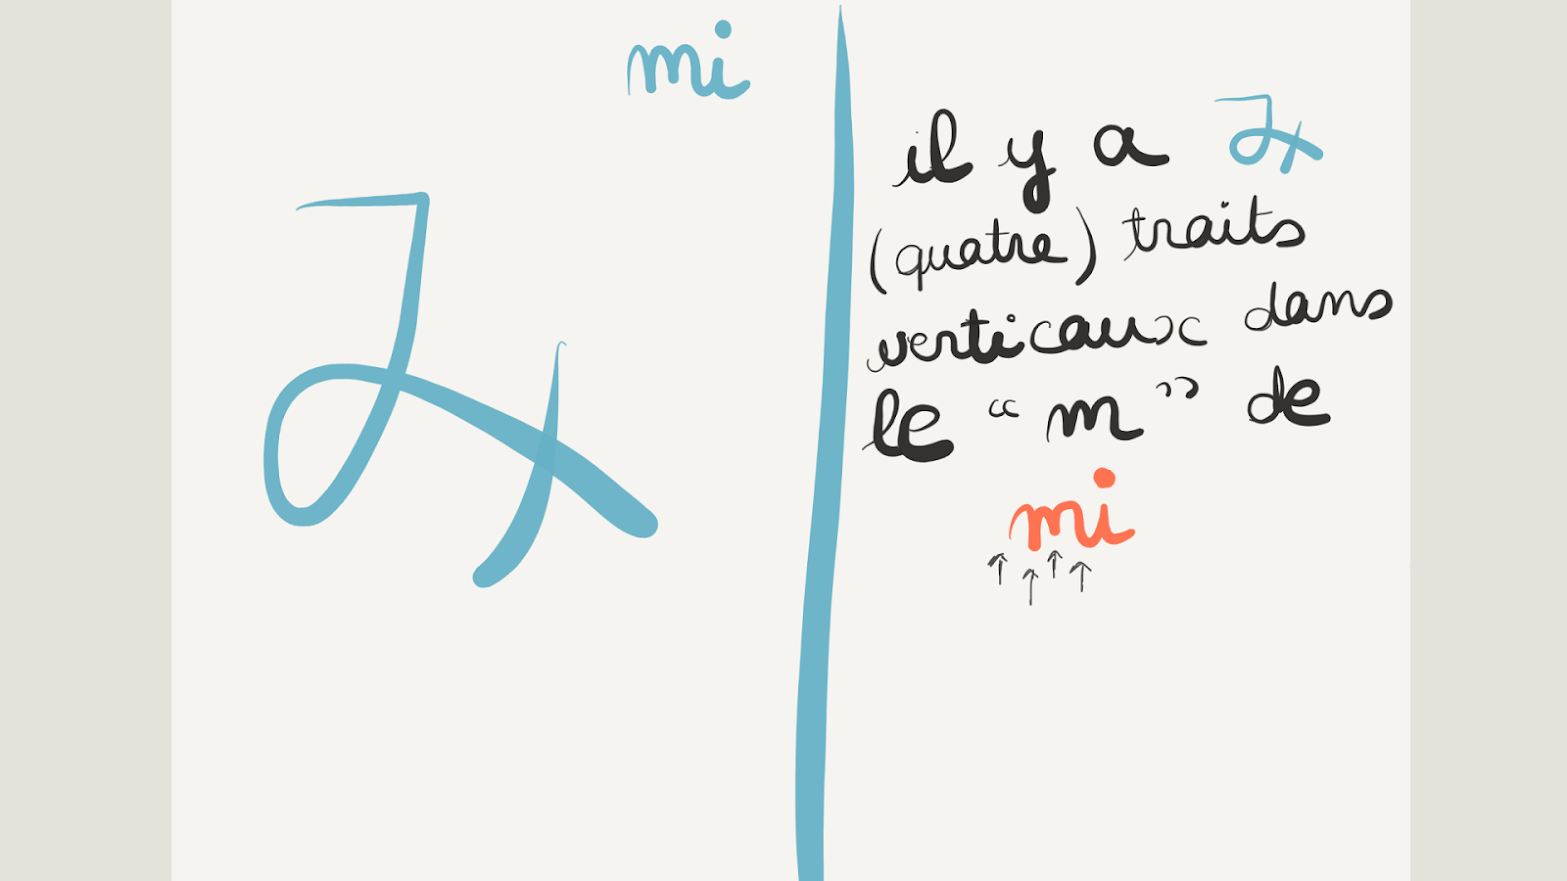 mi
み
il y a み
(quatre) traits
verticaux dans
le “m” de
mi